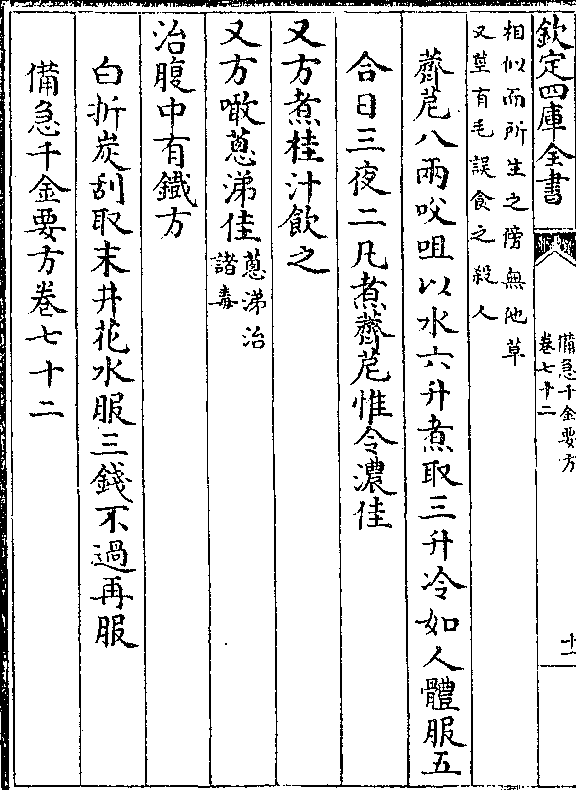 欽定四庫全書
備急千金要方
卷七十二
十一
相似而所生之傍無他草
又莖有毛誤食之殺人
薺苨八兩㕮咀以水六升煮取三升冷如人體服五
合日三夜二凡煮薺苨惟令濃佳
又方煮桂汁飲之
又方噉蔥涕佳蔥涕治
諸毒
治腹中有鐵方
白折炭刮取末井花水服三錢不過再服
備急千金要方卷七十二